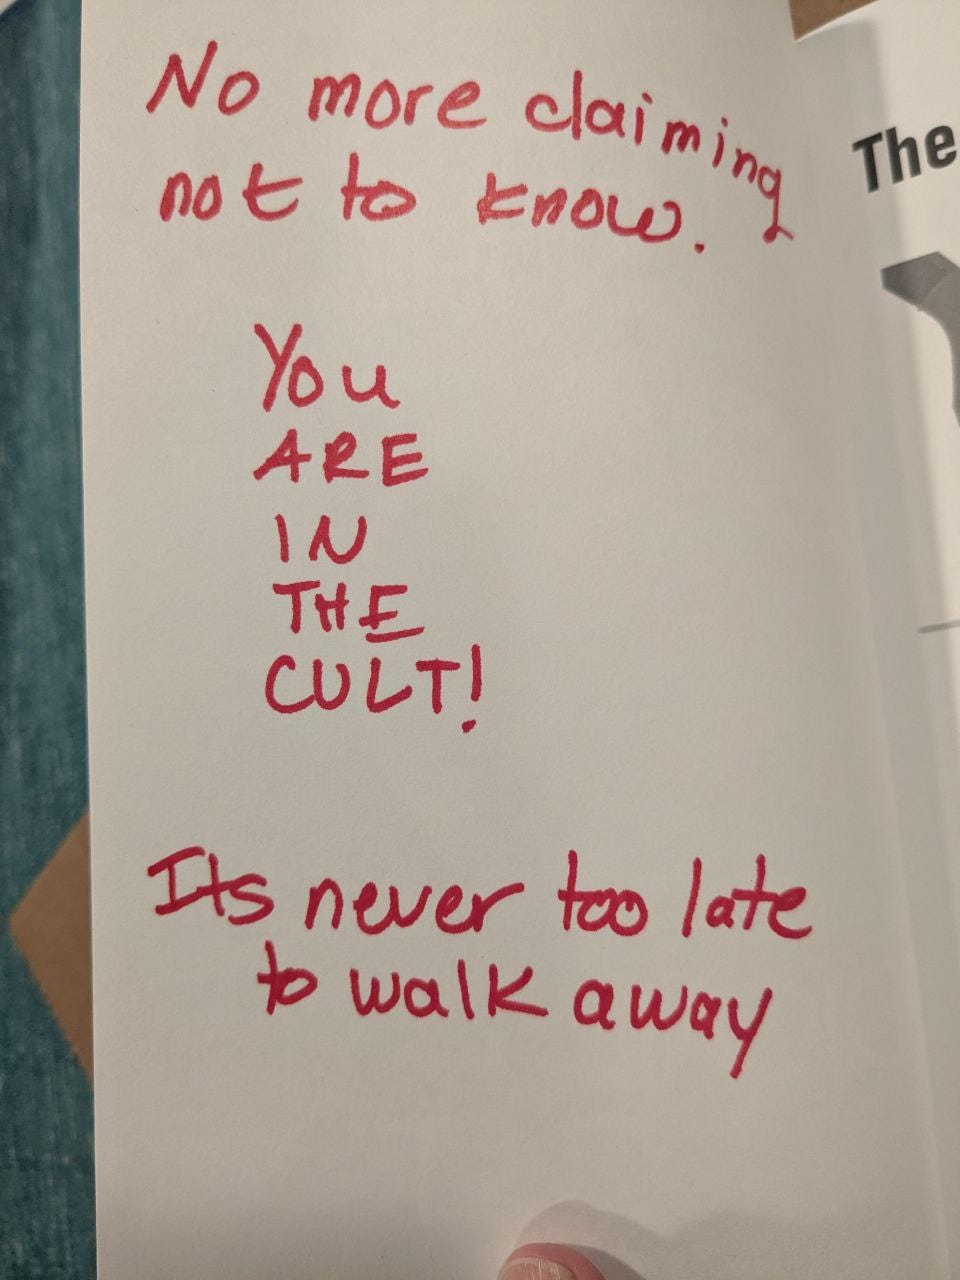 No more claiming
not to know.
The
You
ARE
IN
THE
CULT!
Its never too late
to walk away